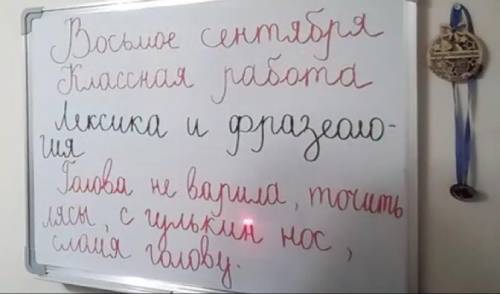 Восьмое сентября
Классная работа
Лексика и фразеоло-
гия
Голова не варила, точить
лясы, с гулькин нос,
сломя голову.